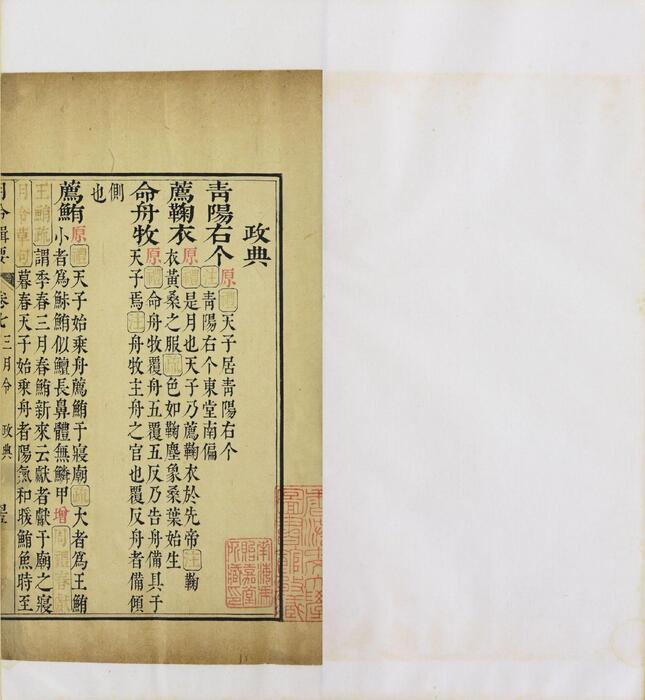 政典
青陽右个原禮天子居青陽右个
注青陽右个東堂南偏
薦鞠衣原禮是月也天子乃薦鞠衣於先帝注鞠
衣黃桑之服疏色如鞠塵象桑葉始生
命舟牧原禮命舟牧覆舟五覆五反乃告舟備具于
天子焉注舟牧主舟之官也覆反舟者備傾
側
也
薦鮪原禮天子始乘舟薦鮪于寢廟疏大者爲王鮪
小者爲鮇鮪似鱣長鼻體無鱗甲增周禮春獻
王鮪疏謂季春三月春鮪新來云獻者獻于廟之寢
月令章句暮春天子始乘舟者陽氣和暖鮪魚時至
月令輯要 卷七 三月令 政典